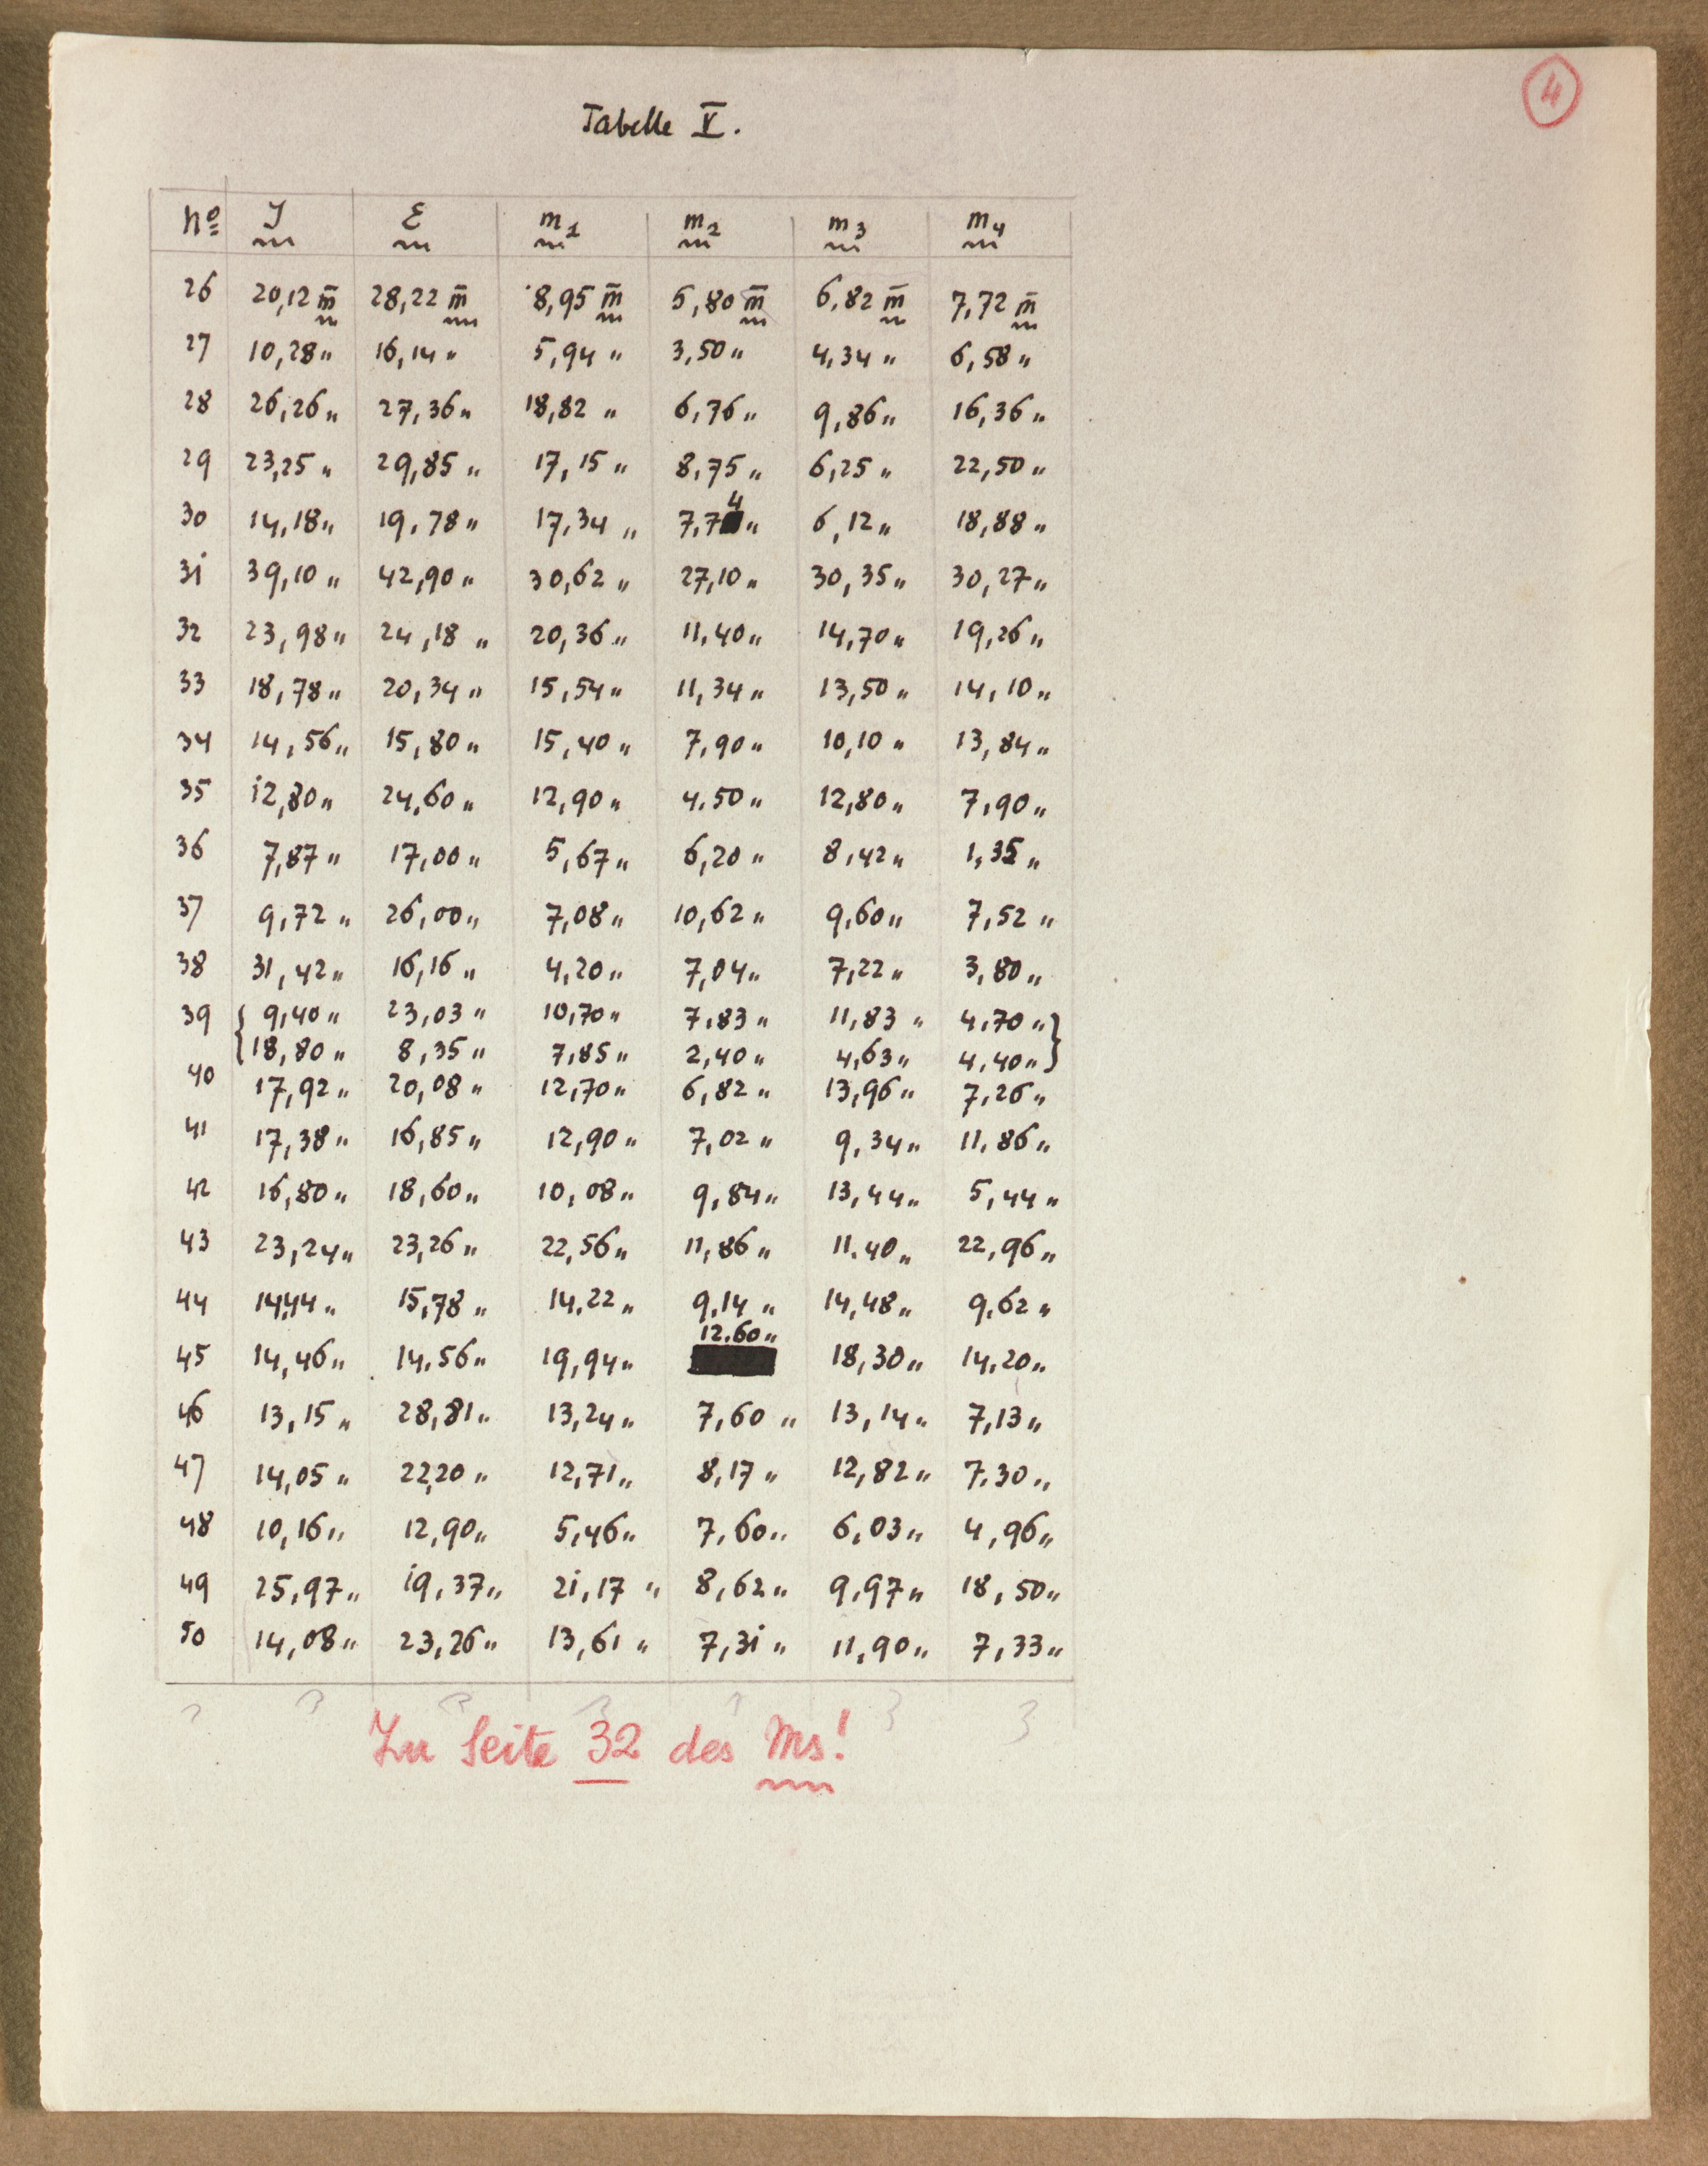 4
Tabelle V.
Nº J E m1 m2 m3 m4
26 20,12 m̅ 28,22 m̅ 8,95 m̅ 5,80 m̅ 6,82 m̅ 7,72 m̅
27 10,28 " 16,14 " 5,94 " 3,50 " 4,34 " 6,58 "
28 26,26 " 27,36 " 18,82 " 6,76 " 9,86 " 16,36 "
29 23,25 " 29,85 " 17,15 " 8,75 " 6,25 " 22,50 "
30 14,18 " 19,78 " 17,34 " 7,74 " 6,12 " 18,88 "
31 39,10 " 42,90 " 30,62 " 27,10 " 30,35 " 30,27 "
32 23,98 " 24,18 " 20,36 " 11,40 " 14,70 " 19,26 "
33 18,78 " 20,34 " 15,54 " 11,34 " 13,50 " 14,10 "
34 14,56 " 15,80 " 15,40 " 7,90 " 10,10 " 13,84 "
35 12,80 " 24,60 " 12,90 " 4.50 " 12,80 " 7,90 "
36 7,87 " 17,00 " 5,67 " 6,20 " 8,42 " 1,35 "
37 9,72 " 26,00 " 7,08 " 10,62 " 9,60 " 7,52 "
38 31,42 " 16,16 " 4,20 " 7,04 " 7,22 " 3,80 "
39 { 9,40 " 23,03 " 10,70 " 7,83 " 11,83 " 4,70 " }
18,80 " 8,35 " 7,85 " 2,40 " 4,63 " 4,40 "
40 17,92 " 20,08 " 12,70 " 6,82 " 13,96 " 7,26 "
41 17,38 " 16,85 " 12,90 " 7,02 " 9,34 " 11,86 "
42 16,80 " 18,60 " 10,08 " 9,84 " 13,44 " 5,44 "
43 23,24 " 23,26 " 22,56 " 11,86 " 11.40 " 22,96 "
44 14,44 " 15,78 " 14.22 " 9,14 " 14,48 " 9,62 "
45 14,46 " 14.56 " 19,94 " 12.60 " 18,30 " 14,20 "
46 13,15 " 28,81 " 13,24 " 7,60 " 13,14 " 7,13 "
47 14,05 " 22,20 " 12,71 " 8,17 " 12,82 " 7.30 "
48 10,16 " 12,90 " 5,46 " 7,60 " 6,03 " 4,96 "
49 25,97 " 19,37 " 21,17 " 8,62 " 9,97 " 18,50 "
50 14,08 " 23,26 " 13,61 " 7,31 " 11,90 " 7,33 "
Zu Seite 32 des Ms!